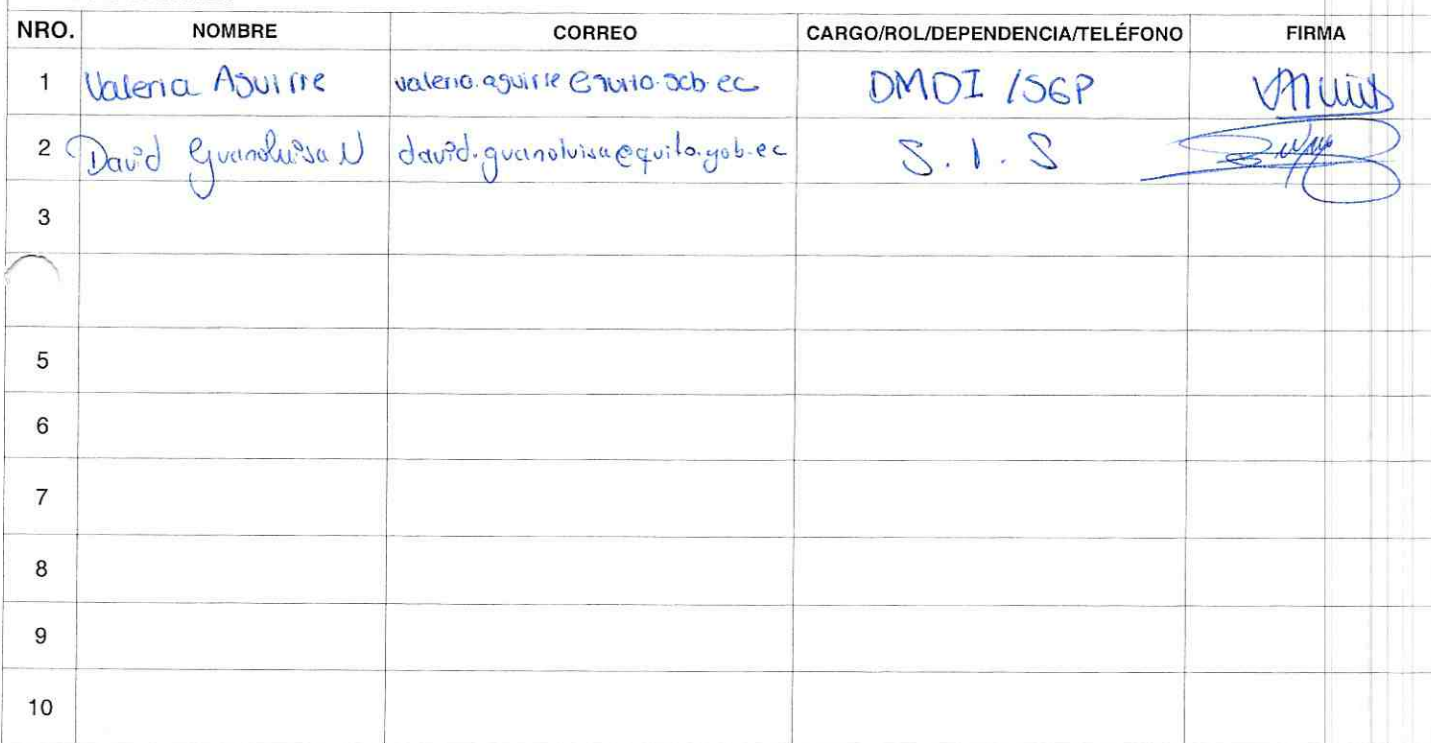 NRO. NOMBRE CORREO CARGO/ROL/DEPENDENCIA/TELÉFONO FIRMA
1 Valeria Aguirre valeria.aguirre@quito.gob.ec DMDI /SGP
2 David Guanoluisa N david.guanoluisa@quito.gob.ec S. I. S
3
5
6
7
8
9
10